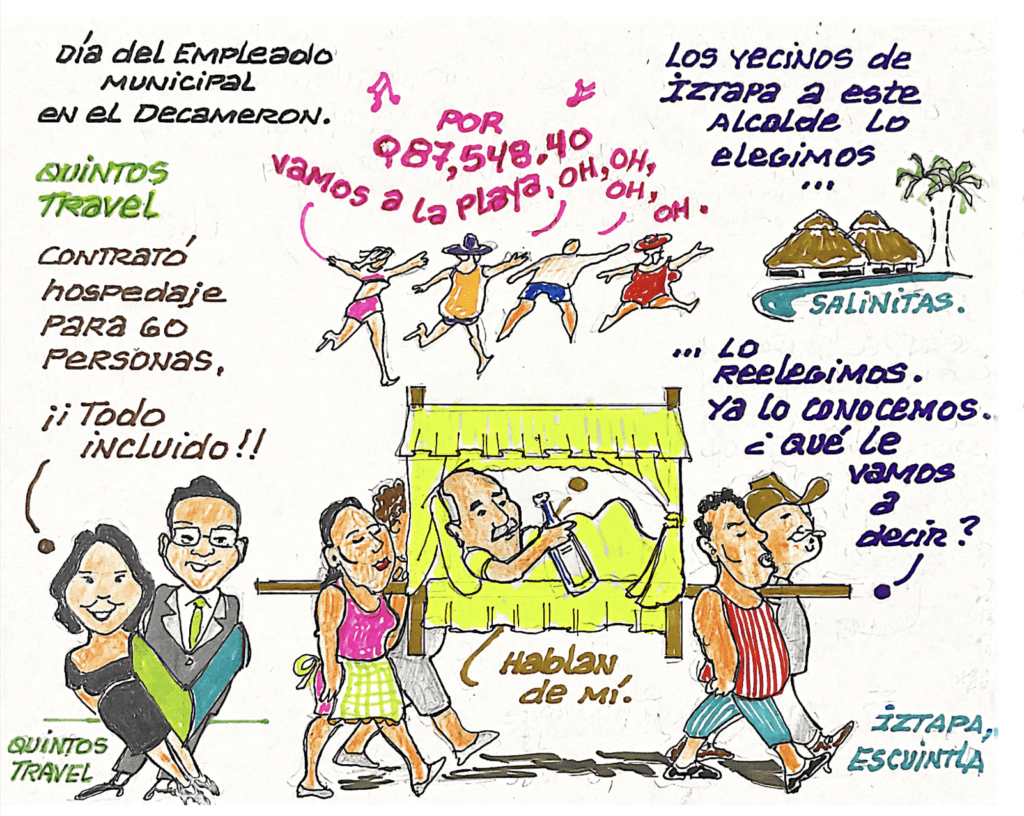 Día del Empleado
Municipal
en el Decameron.
Quintos
Travel
Contrató
hospedaje
para 60
personas,
¡¡Todo
incluido!!
Por
Q87,548.40
Vamos a la playa, oh, oh,
oh,
oh.
Los vecinos de
Iztapa a este
Alcalde lo
elegimos
...
Salinitas.
... lo
reelegimos.
Ya lo conocemos.
¿Qué le
vamos
a
decir?
Hablan
de mí.
Quintos
Travel
Iztapa,
Escuintla